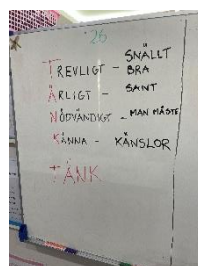 26
SNÄLLT
TREVLIGT - BRA
ÄRLIGT - SANT
NÖDVÄNDIGT - MAN MÅSTE
KÄNNA - KÄNSLOR
TÄNK